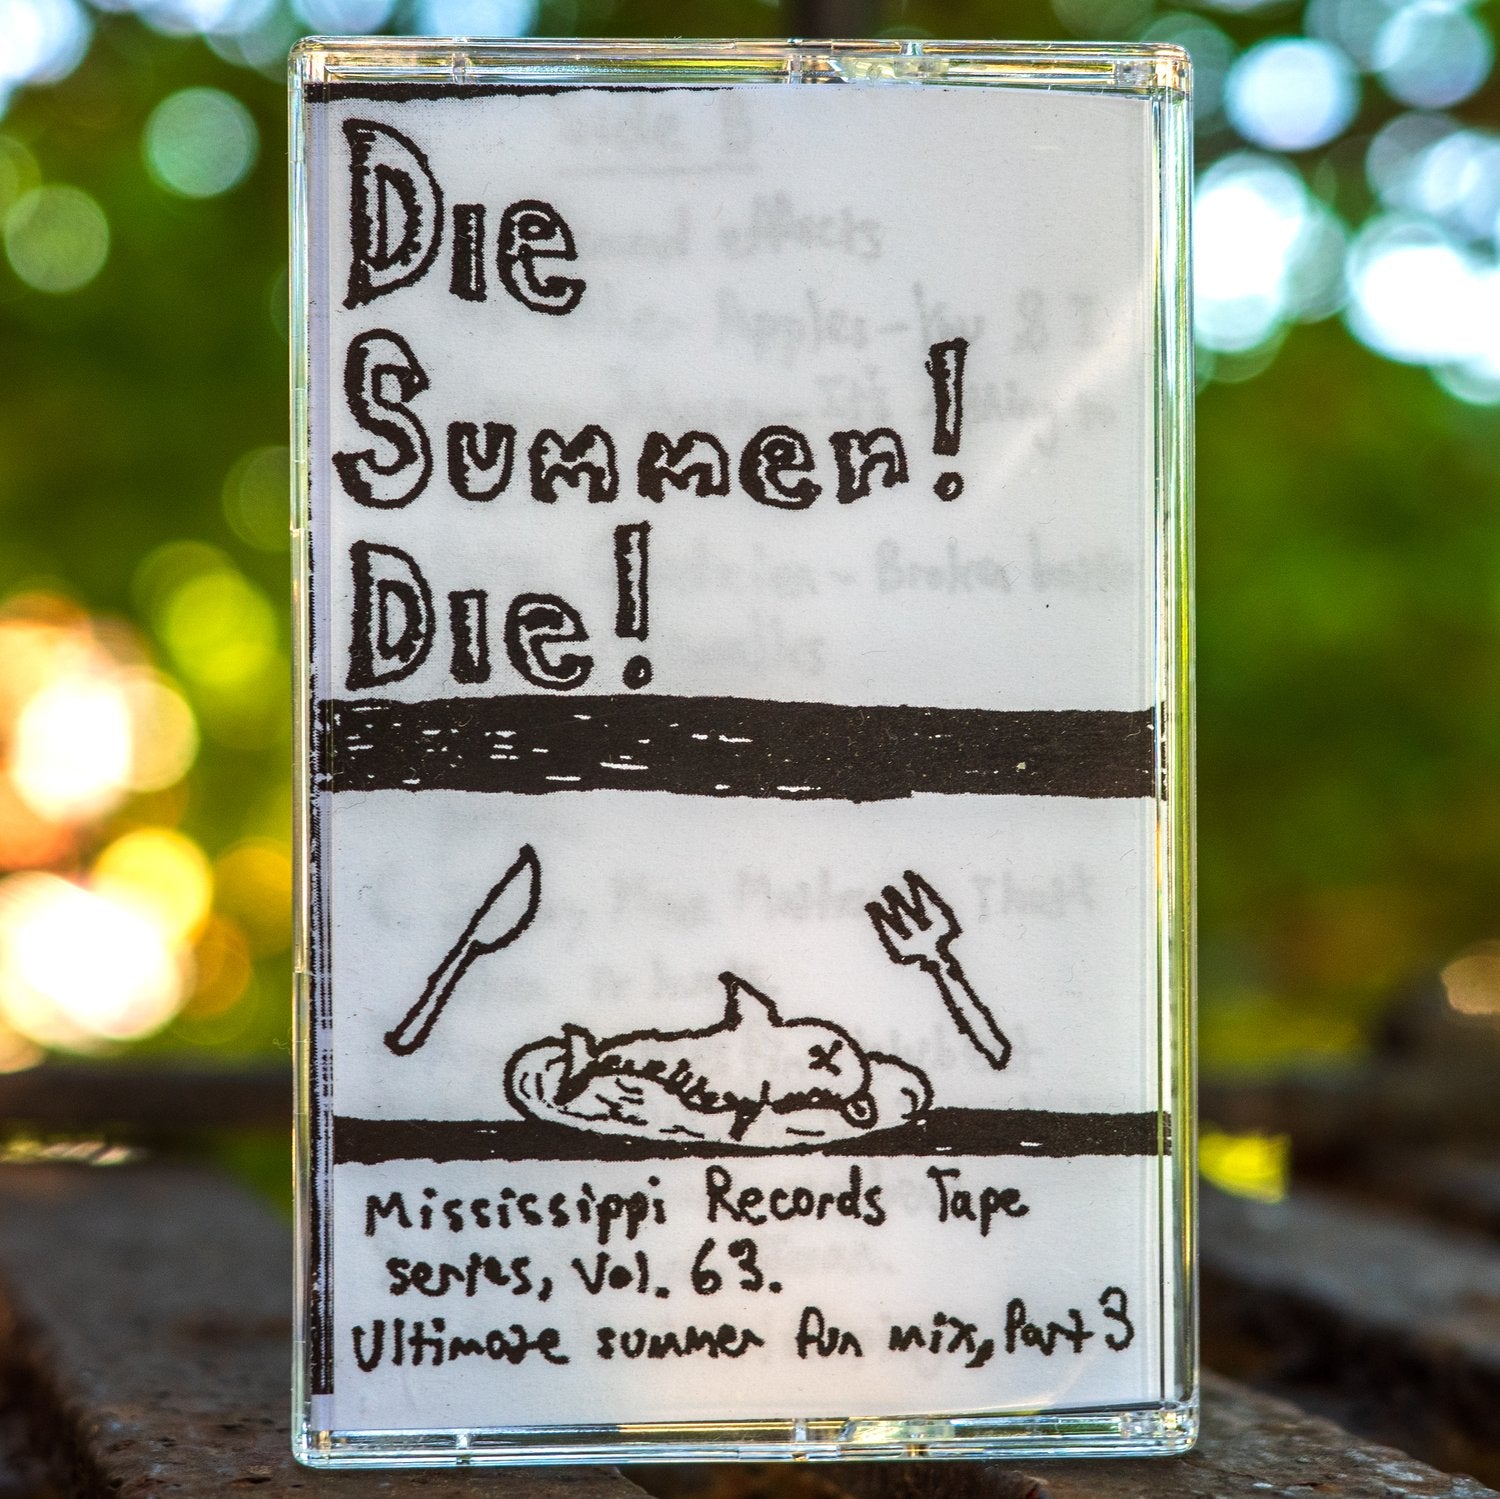 Die
Summer!
Die!
Mississippi Records Tape
series, Vol. 63.
Ultimate summer fun mix, Part 3